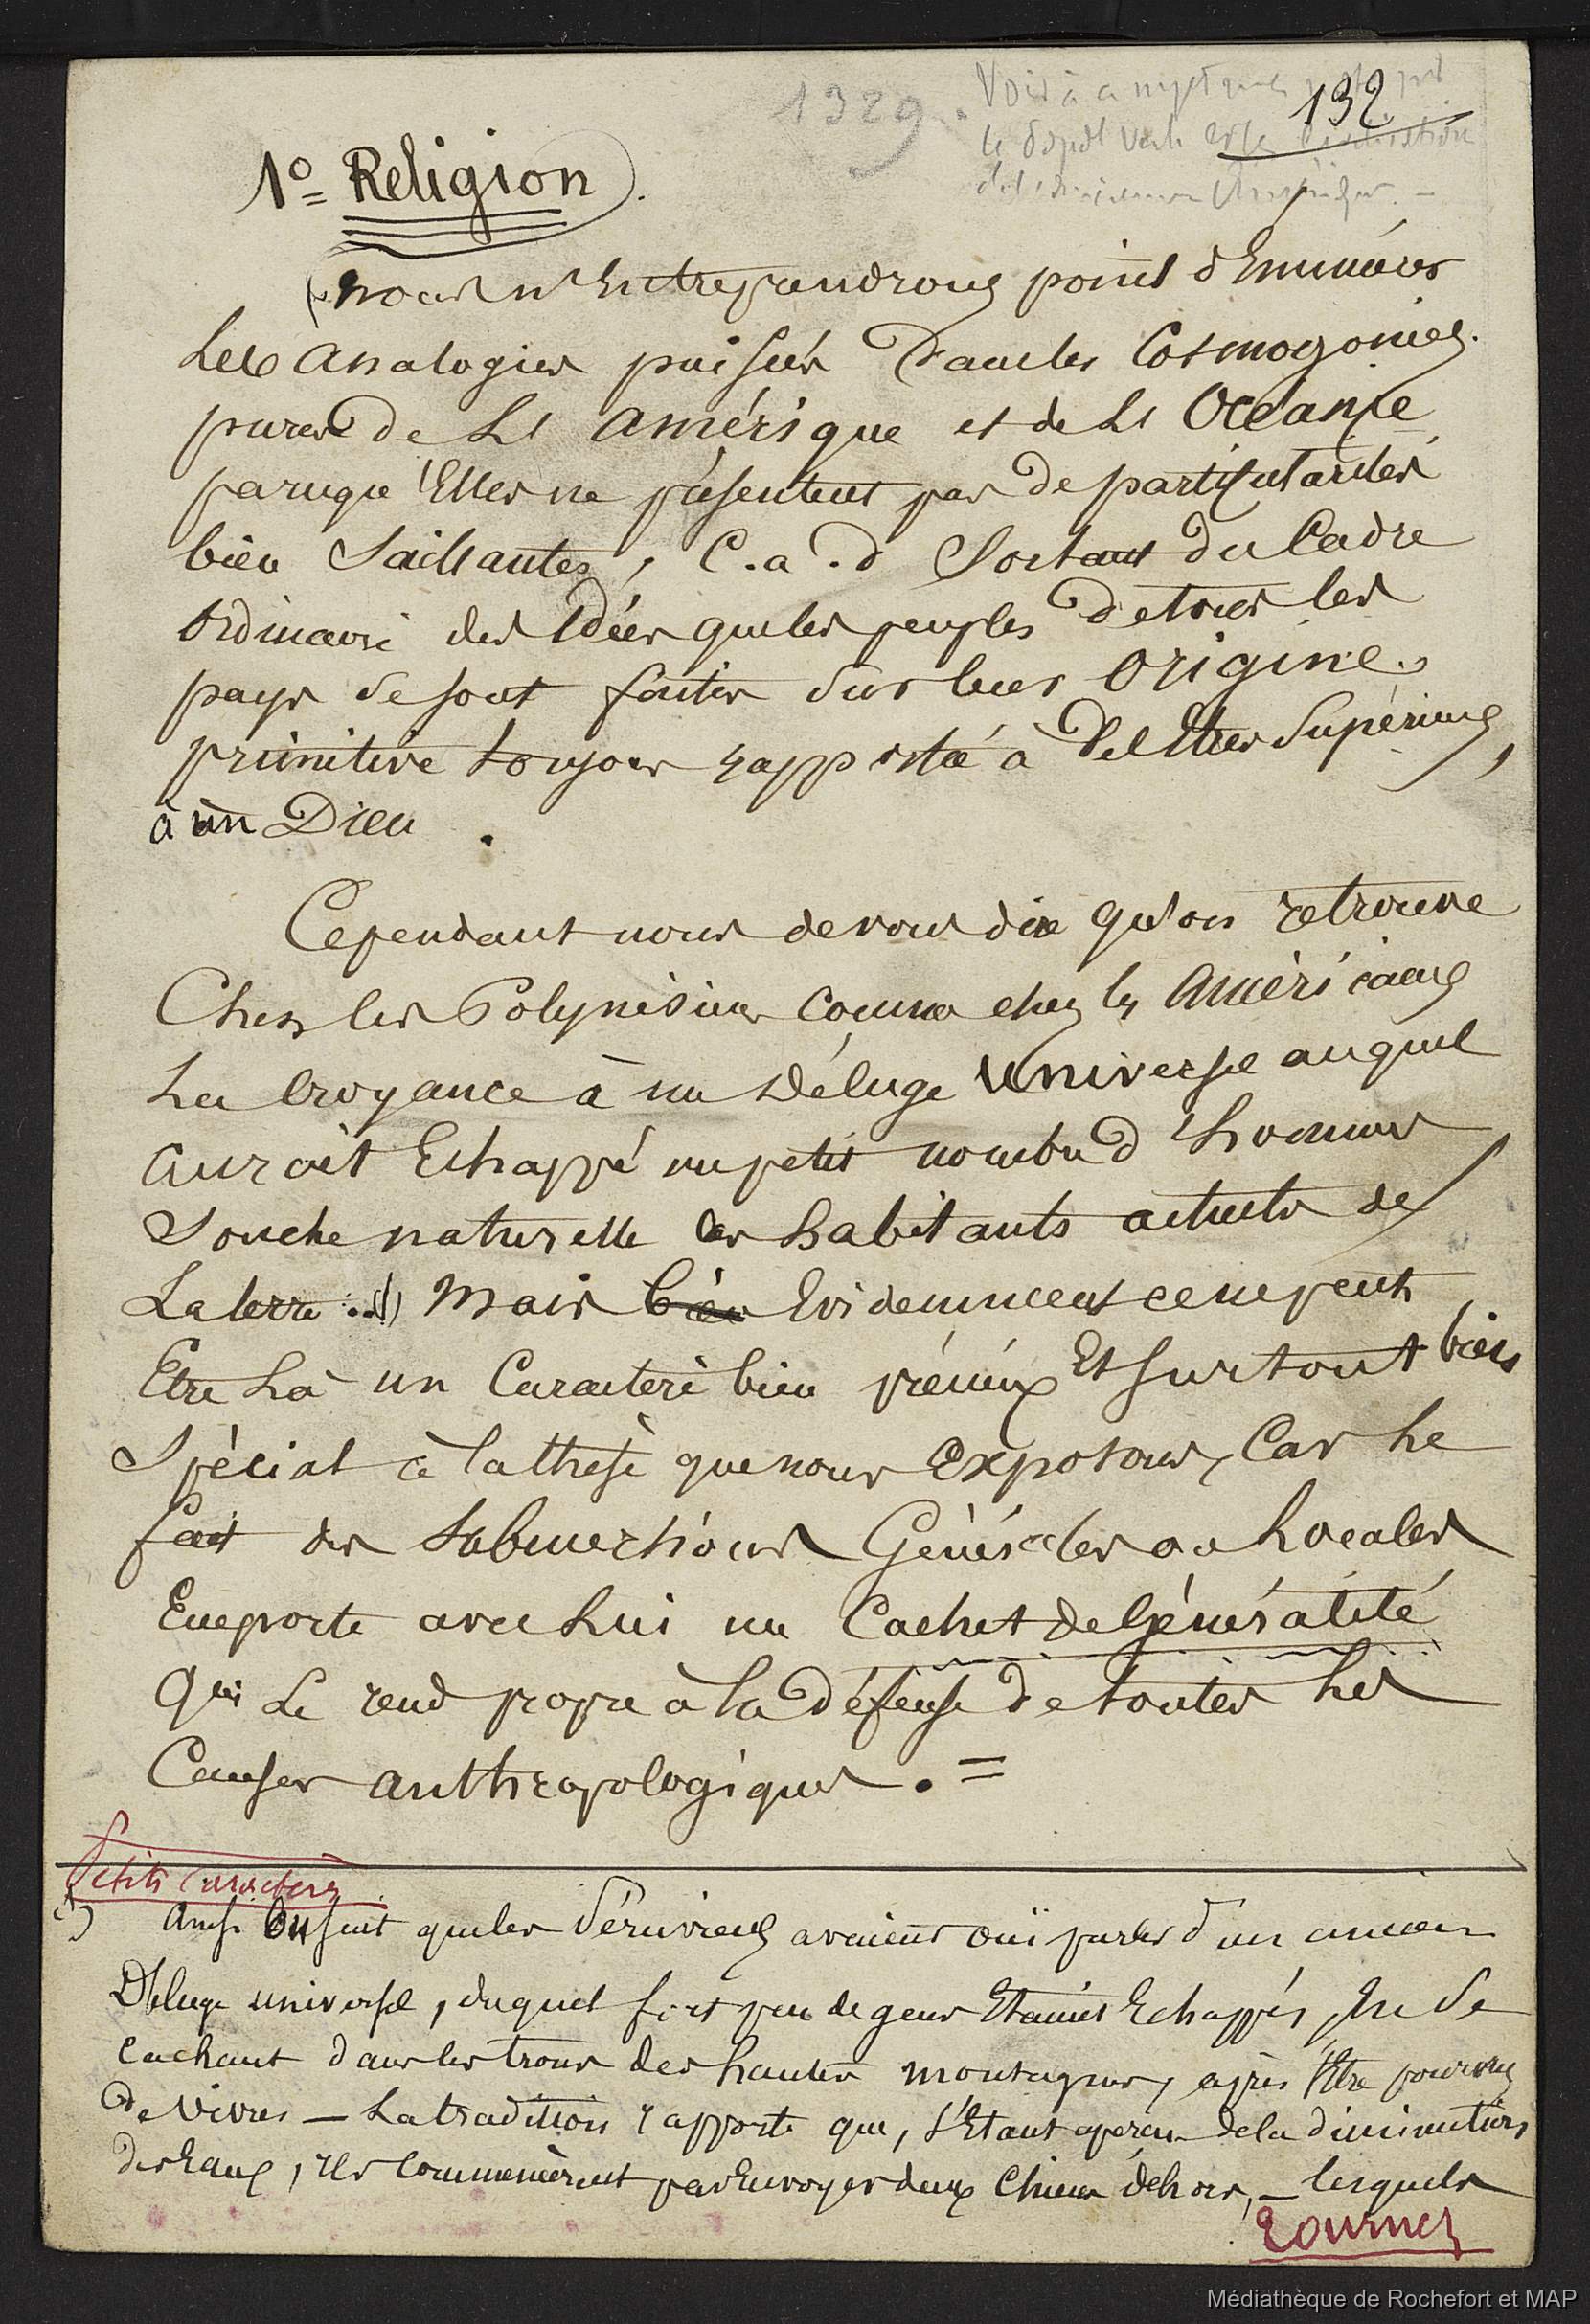 1329.
132
Voilà
le
1º Religion.
(nous n'Entreprendrons point d'Enumérer
Les analogies puisées dans les Cosmogonies
pures de L'Amérique et de L'Océanie
parceque Elles ne présentent pas de particularités
bien Saillantes, C.a.d Sortant du Cadre
Ordinaire des Idées que les peuples de tous les
pays se sont faites sur leur Origine
primitive toujours rapportée à des Etres Supérieurs,
à un Dieu.
Cependant nous devons dire qu'on retrouve
Chez les Polynésiens comme chez les Américains
La Croyance à un Déluge Universel auquel
auroit Echappé un petit nombre d'hommes
Souche naturelle des habitants actuels de
La terre..(1) Mais bien Evidemment ce ne peut
Etre Là un Caractère bien précieux Et surtout bien
Spécial à la thèse que nous Exposons, Car Le
fait des Submersions Générales ou Locales
Emporte avec Lui un Cachet de Généralité
Qui Le rend propre à la défense de toutes Les
Causes anthropologiques. =
Petits Caractères
1) Ainsi On sait que les Péruviens avaient ouï parler d'un ancien
Déluge universel, duquel fort peu de gens Etaient Echappés, En Se
Cachant dans les trous des hautes montagnes, après s'Etre pourvus
de vivres — La tradition rapporte que, s'Etant aperçu de la diminution
des Eaux, Ils Commencèrent par Envoyer deux Chiens dehors, — lesquels
Tournez
Médiathèque de Rochefort et MAP